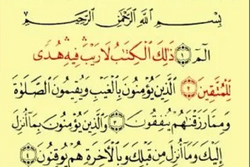 بِسْمِ اللَّهِ الرَّحْمَٰنِ الرَّحِيمِ
الٓمٓ ۝١ ذَٰلِكَ ٱلْكِتَٰبُ لَا رَيْبَ ۛ فِيهِ ۛ هُدًى
لِّلْمُتَّقِينَ ۝٢ ٱلَّذِينَ يُؤْمِنُونَ بِٱلْغَيْبِ وَيُقِيمُونَ ٱلصَّلَوٰةَ
وَمِمَّا رَزَقْنَٰهُمْ يُنفِقُونَ ۝٣ وَٱلَّذِينَ يُؤْمِنُونَ بِمَآ أُنزِلَ
إِلَيْكَ وَمَآ أُنزِلَ مِن قَبْلِكَ وَبِٱلْءَاخِرَةِ هُمْ يُوقِنُونَ ۝٤